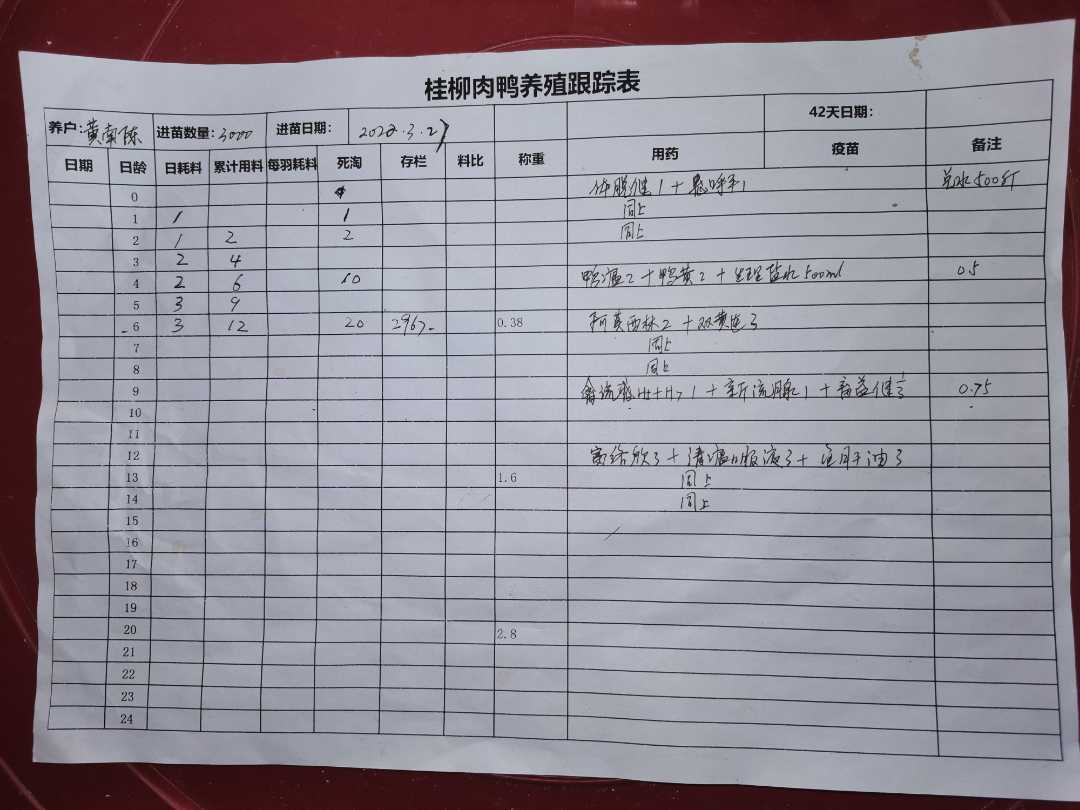 桂柳肉鸭养殖跟踪表
养户: 黄南陈 进苗数量: 3000 进苗日期: 2022.3.27 42天日期:
日期 日龄 日耗料 累计用料 每羽耗料 死淘 存栏 料比 称重 用药 疫苗 备注
0 4 1 + 1 兑水500斤
1 1 1 同上
2 1 2 2 同上
3 2 4
4 2 6 10 鸭瘟2 + 鸭黄2 + 生理盐水500ml 0.5
5 3 9
6 3 12 20 2967 0.38 阿莫西林2 + 双黄连3
7 同上
8 同上
9 禽流感H5+H7 1 + 新流腺1 + 0.75
10
11
12 3 + 清瘟口服液3 + 鱼肝油3
13 1.6 同上
14 同上
15
16
17
18
19
20 2.8
21
22
23
24